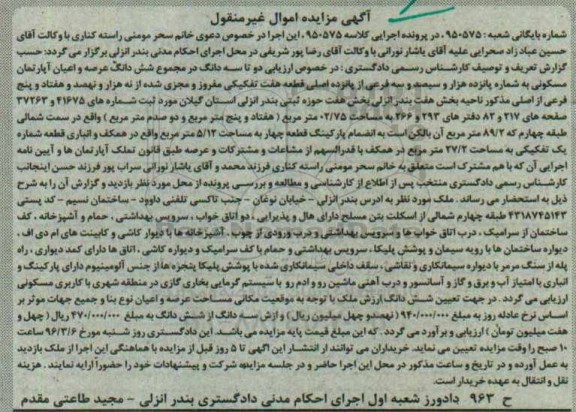 آگهی مزایده اموال غیرمنقول
شماره بایگانی شعبه : ۹۵۰۵۷۵، در پرونده اجرایی کلاسه ۹۵۰۵۷۵، این اجرا در خصوص دعوی خانم سحر مومنی راسته کناری با وکالت آقای
حسین عباد زاد صحرایی علیه آقای یاشار نورانی با وکالت آقای رضا پور شریفی در محل اجرای احکام مدنی بندر انزلی برگزار می گردد: حسب
گزارش تعریف و توصیف کارشناس رسمی دادگستری : در خصوص ارزیابی دو تا سه دانگ در مجموع شش دانگ عرصه و اعیان آپارتمان
مسکونی به شماره پانزده هزار و سیصد و فرعی از پانزده اصلی قطعه هفت تفکیکی مفروز و مجزی شده از نه هزار و نهصد و هفتاد و پنج
فرعی از اصلی مذکور ناحیه بخش هفت بندر انزلی بخش هفت حوزه ثبتی بندر انزلی استان گیلان مورد ثبت شماره های ۴۱۶۷۵ و ۳۷۲۶۳
صفحه های ۲۱۷ و ۸۲ دفتر های ۲۹۳ و ۲۶۶ به مساحت ۰۲/۷۵ متر مربع ( هفتاد و پنج متر مربع و دو صدم متر مربع ) واقع در سمت شمالی
طبقه چهارم که ۸۹/۲ متر مربع آن بالکن است به انضمام پارکینگ قطعه چهار به مساحت ۵/۱۲ متر مربع واقع در همکف و انباری قطعه شماره
یک تفکیکی به مساحت ۲۷/۲ متر مربع در همکف با قدرالسهم از مشاعات و مشترکات و عرصه طبق قانون تملک آپارتمان ها و آیین نامه
اجرایی آن که با هم مشترک است متعلق به خانم سحر مومنی راسته کناری فرزند محمد و آقای یاشار نورانی سراب پور فرزند حسن اینجانب
کارشناس رسمی دادگستری منتخب پس از اطلاع از کارشناسی و مطالعه و بررسی پرونده از محل مورد نظر بازدید و گزارش آن را به شرح
ذیل به استحضار می رساند . ملک مورد نظر به ادرس بندر انزلی - خیابان نوغان - جنب تاکسی تلفنی داوود - ساختمان نسیم - کد پستی
۴۳۱۸۷۴۵۱۴۳ طبقه چهارم شمالی از اسکلت بتن مسلح دارای هال و پذیرایی ، دو اتاق خواب ، سرویس بهداشتی ، حمام و آشپزخانه . کف
ساختمان از سرامیک ، درب اتاق خواب ها و سرویس بهداشتی و درب ورودی از چوب . آشپزخانه ها با دیوار کاشی و کابینت های ام دی اف ،
دیواره ساختمان ها با رویه سیمان و پوشش پلیکا . سرویس بهداشتی و حمام با کف سرامیک و دیواره کاشی ، اتاق ها دارای کمد دیواری ، راه
پله از سنگ مرمر با دیواره سیمانکاری و نقاشی ، سقف داخلی سیمانکاری شده با پوشش پلیکا پنجره ها از جنس آلومینیوم دارای پارکینگ و
انباری با امتیاز آب و برق و گاز و آسانسور و درب آهنی ماشین رو و ادم رو با سیستم گرمایی بخاری گازی در منطقه شهری با کاربری مسکونی
ارزیابی می گردد . در جهت تعیین شش دانگ ارزش ملک با توجه به موقعیت مکانی مساحت عرصه و اعیان نوع بنا و جمیع جهات موثر بر
اساس نرخ عادله روز به مبلغ ۹۴۰/۰۰۰/۰۰۰ (نهصدو چهل میلیون ریال ) و ارزش سه دانگ از شش دانگ به مبلغ ۴۷۰/۰۰۰/۰۰۰ ریال (چهل و
هفت میلیون تومان ) ارزیابی و برآورد می گردد . که این مبلغ قیمت پایه مزایده می باشد. این دادگستری روز شنبه مورخ ۹۶/۳/۶ ساعت
۱۰ صبح را وقت مزایده تعیین می نماید. خریداران می توانند از انتشار این آگهی تا ۵ روز قبل از مزایده با هماهنگی این اجرا از ملک بازدید
به عمل آورده و در تاریخ و ساعت مذکور در محل این اجرا حاضر و در جلسه مزایده شرکت و پیشنهادات خود را حضوراً ارایه نمایند . هزینه
نقل و انتقال به عهده خریدار است.
ح ۹۶۳ دادورز شعبه اول اجرای احکام مدنی دادگستری بندر انزلی - مجید طاعتی مقدم